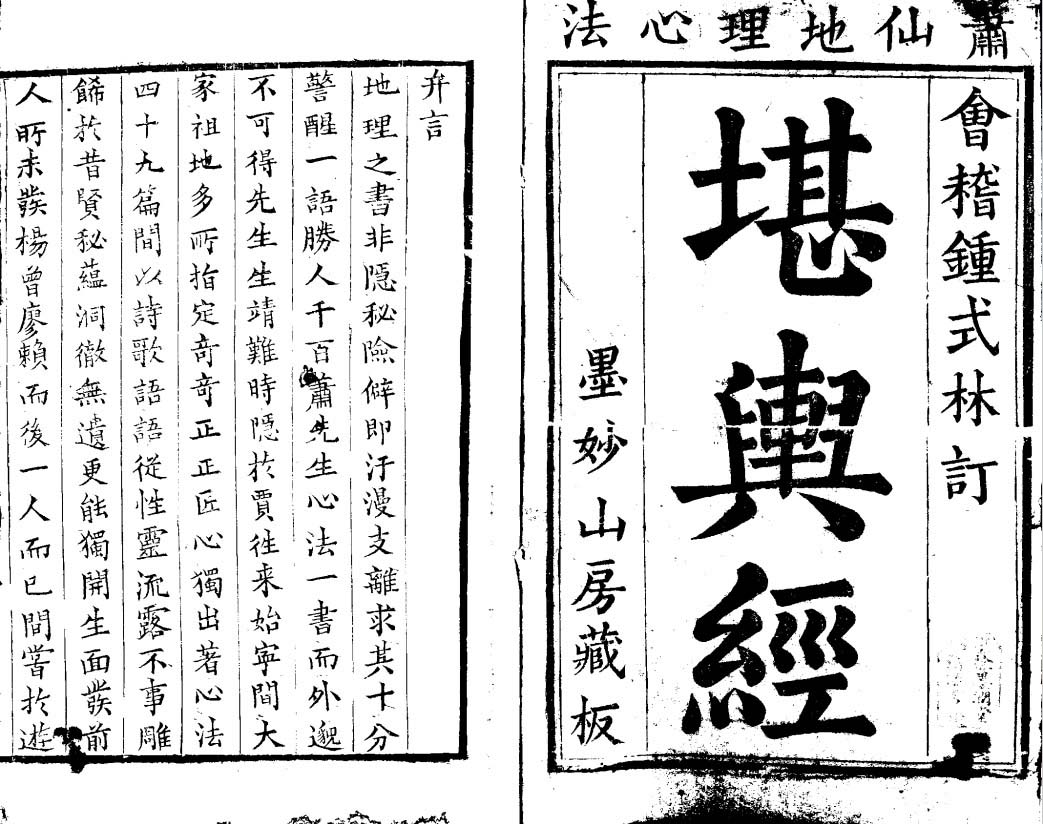 蕭仙地理心法
會稽鍾式林訂
堪輿經
墨妙山房藏板
弁言
地理之書非隱秘險僻即汙漫支離求其十分
警醒一語勝人千百蕭先生心法一書而外邈
不可得先生生靖難時隱於賈徃来始寧間大
家祖地多所指定竒竒正正匠心獨出著心法
四十九篇間以詩歌語語從性靈流露不事雕
餙於昔賢秘蘊洞徹無遺更能獨開生面發前
人所未發楊曾廖賴而後一人而已間嘗於遊